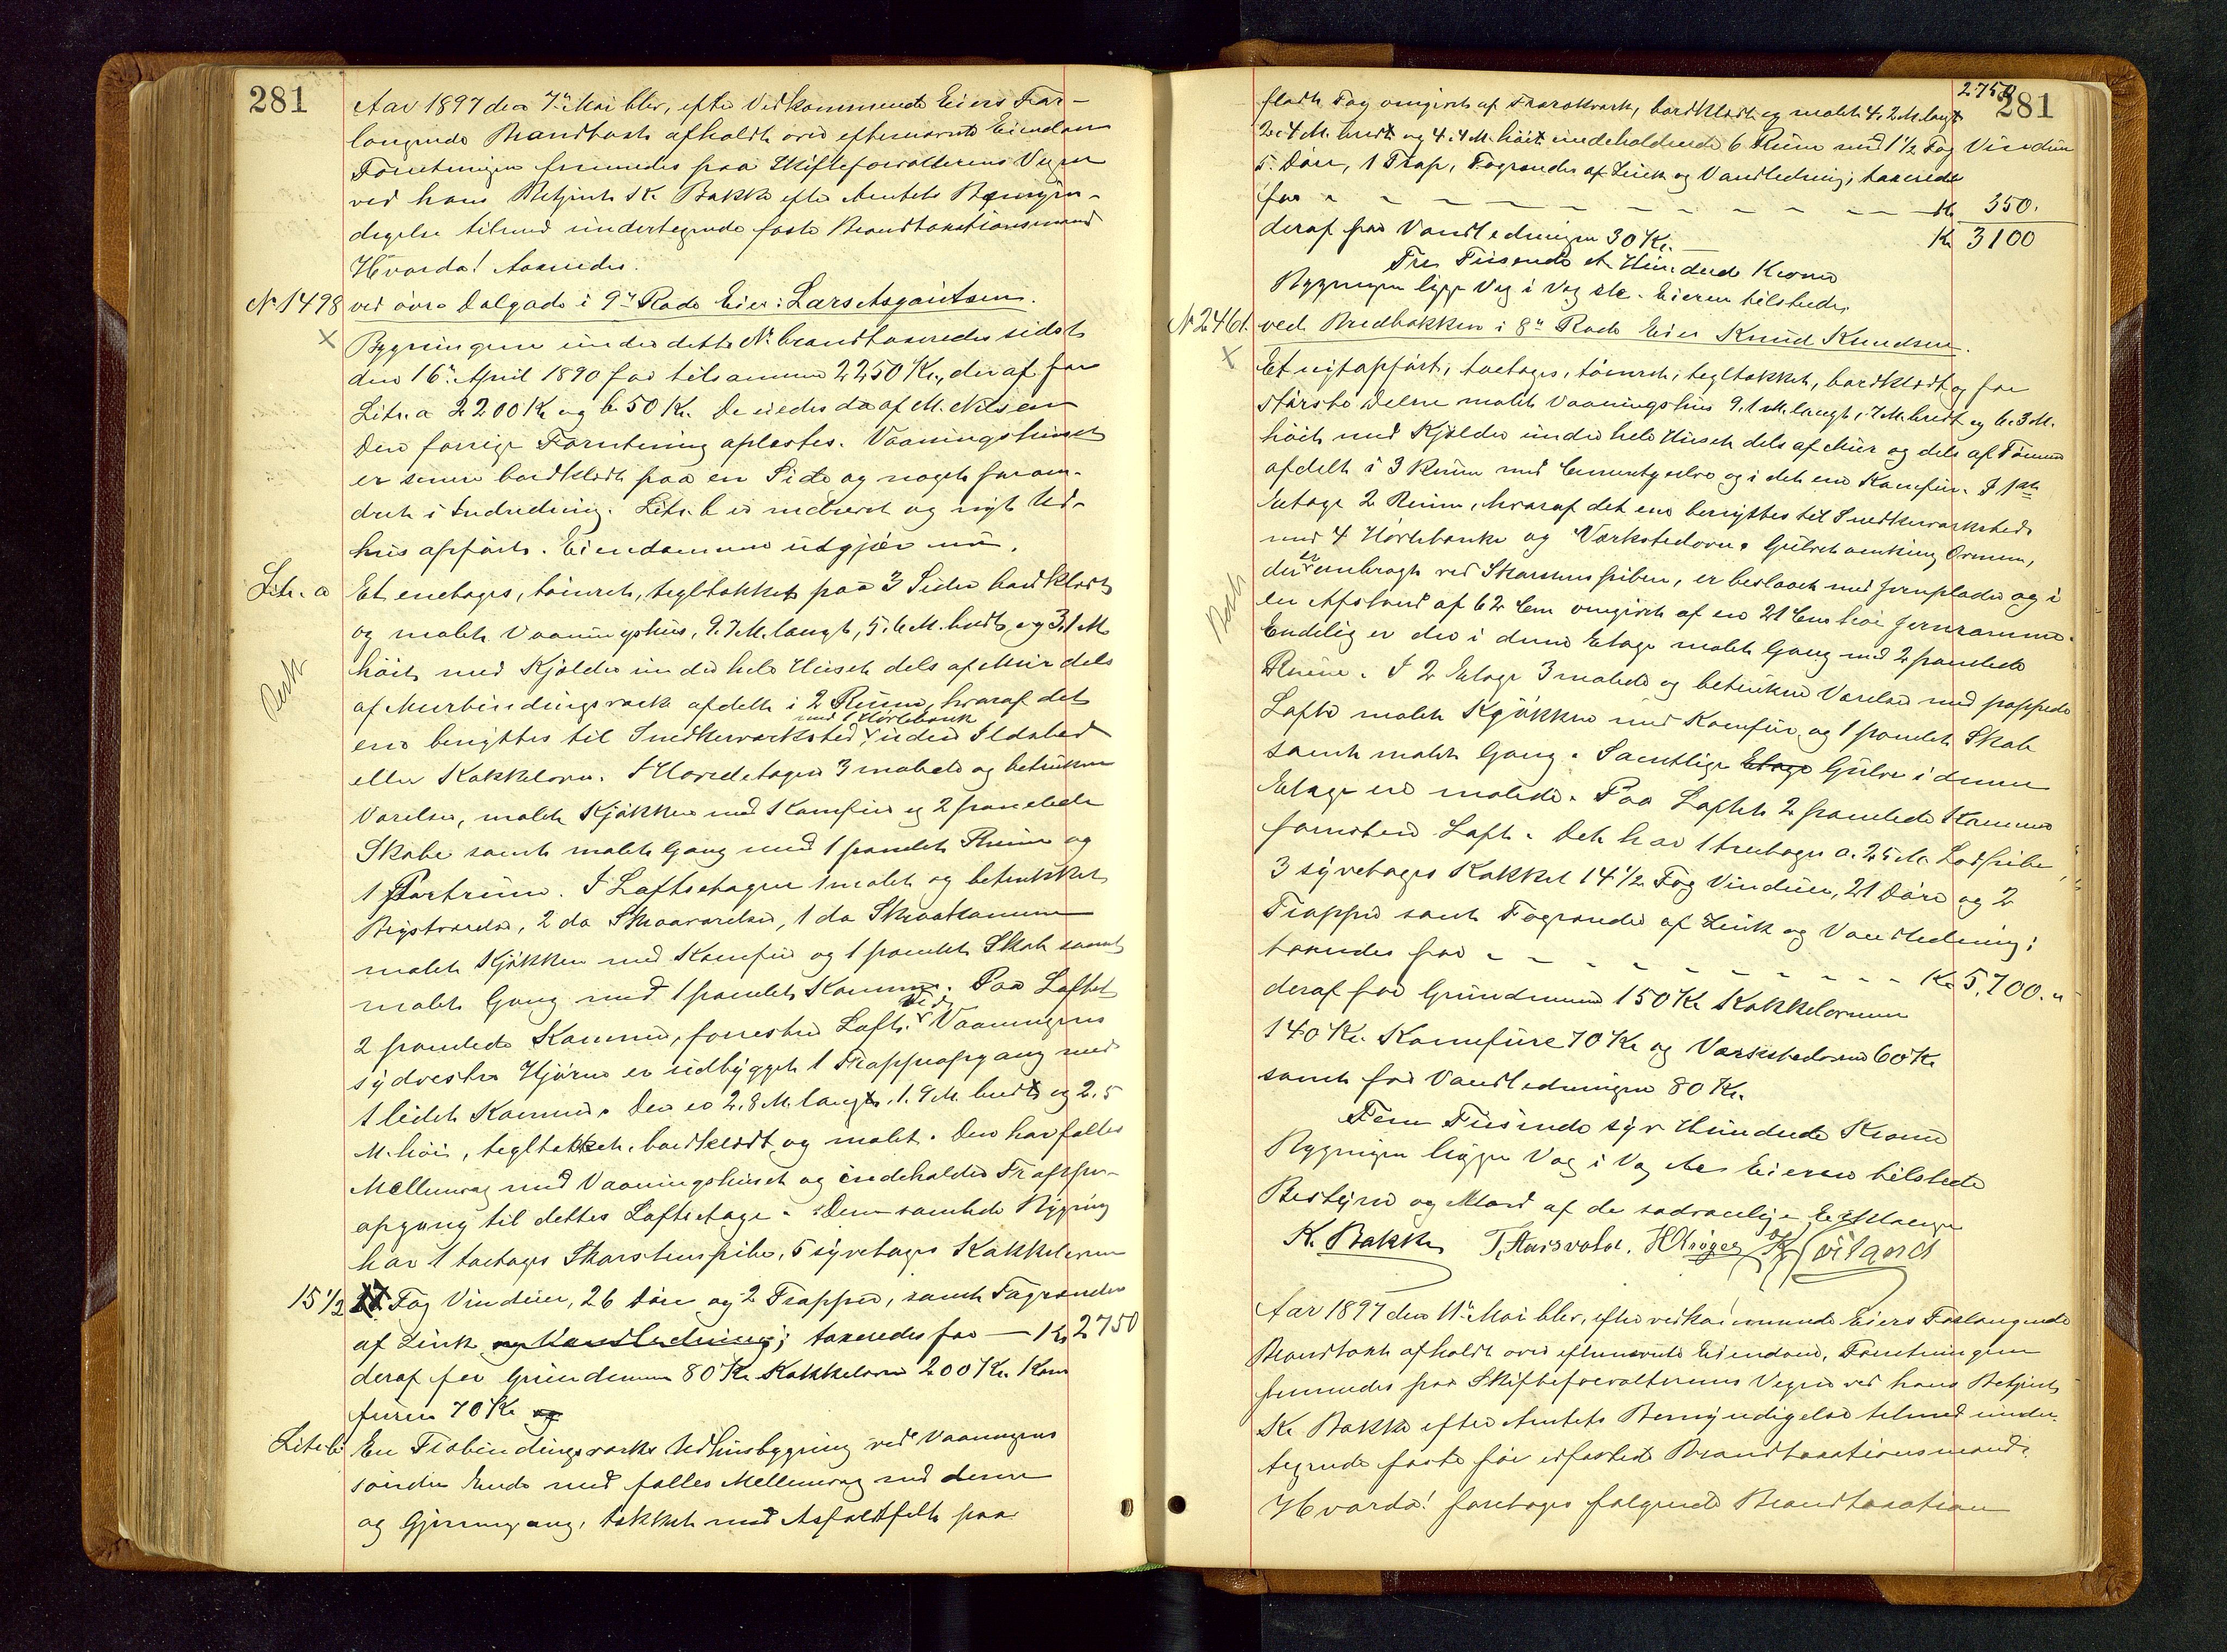 281
Aar 1897 den 7de Mai blev, efter Vedkommende Eiers For-
langende Brandtaxt afholdt over efternævnte Eiendom
Forretningen fremmedes paa Skifteforvalterens Vegne
ved hans Betjent K. Bakke efter Amtets Bemyn-
digelse tilmed undertegnede faste Brandtaxationsmænd
Hvorda! Taxeredes.
No 1498 ved øvre Dalgade i 9de Rode Eier: Lars Asgautsen.
Bygningerne under dette No brandtaxeredes sidst
den 16de April 1890 for tilsammen 2250 Kr, deraf for
Litr. a 2200 Kr og b 50 Kr. De eiedes da af M. Nilsen
Den forrige Forretning oplæstes. Vaaningshuset
er senere bordklædt paa en Side og noget foran-
dret i Indredning. Litr. b er nedrevet og nyt Ud-
hus opført. Eiendommen udgjør nu.
Litr. a Et enetages, tømret, tegltækket paa 3 Sider bordklædt
og malet Vaaningshus, 9.7 M. langt, 5.6 M. bredt og 3.1 M
høit med Kjælder under hele Huset dels af Mur dels
af Murbindingsværk afdelt i 2 Rum, hvoraf det
med 1 Høvlebænk
ene benyttes til Snedkerværksted uden Ildsted
eller Kakkelovn. I Hovedetagen 3 malede og betrukne
Værelser, malet Kjøkken med Komfur og 2 panelede
Skabe samt malet Gang med 1 panelet Rum og
1 Portrum. I Loftsetagen 1 malet og betrukket
Brystværelse, 2 do Skraaværelser, 1 do Skraakammer
malet Kjøkken med Komfur og 1 panelet Skab samt
malet Gang med 1 panelet Kammer. Paa Loftet
2 panelede Kammer, forresten Loft. Ved Vaaningens
sydvestre Hjørne er udbygget 1 Trappeopgang med
1 lidet Kammer. Den er 2.8 M. lang, 1.9 M. bredt og 2.5
M. høi, tegltækket, bordklædt og malet. Den har fælles
Mellemvæg med Vaaningshuset og indeholder Trappe-
opgang til dettes Loftsetage. Denne samlede Bygning
har 1 toetages Skorstenspibe, 5 syvetages Kakkelovne
15 1/2 Fag Vinduer, 26 Døre og 2 Trapper, samt Tagrender
af Zink og Vandledning; taxeredes for — Kr 2750
deraf for Grundmuren 80 Kr Kakkelovne 200 Kr. Kom
furen 70 Kr og
Litr. b En Tisbindingsværks Udhusbygning ved Vaaningens
søndre Ende med fælles Mellemvæg med denne
og Gjennemgang, tækket med Asfaltfelt paa
2750
281
fladt Tag omgivet af Træværk, bordklædt og malet 4.2 M. langt
2.4 M. bredt og 4.4 M. høit indeholdende 6 Rum med 1 1/2 Fag Vinduer
5 Døre, 1 Trap, Tagrender af Zink og Vandledning; taxeredes
for - - - - Kr 350.
deraf for Vandledningen 30 Kr. Kr 3100
Tre Tusende et Hundrede Kroner
Bygningen ligger Væg i Væg etc. Eieren tilstede.
No 2461. ved Bredbakken i 8de Rode Eier Knud Knudsen.
Et nyt opført, toetages, tømret, tegltækket, bordklædt og for
største Delen malet Vaaningshus 9.1 M. langt, 7 M. bredt og 6.3 M.
høit med Kjælder under hele Huset dels af Mur og dels af Tømmer
afdelt i 3 Rum med Cementgulve og i det ene Komfur. I 1ste
Etage 2 Rum, hvoraf det ene benyttes til Snedkerværksted
med 4 Høvlebænke og Værkstedovn. Gulvet omkring Ovnen,
der er anbragt ved Skorstenspiben, er beslaaet med Jernplader og i
en Afstand af 62 Cm omgivet af en 21 Cm høi Jernramme.
Endelig er der i denne Etage malet Gang med 2 panelede
Rum. I 2 Etage 3 malede og betrukne Værelser med pappede
Lofte malet Kjøkken med Komfur og 1 panelet Skab
samt malet Gang. Samtlige Etage Gulve i denne
Etage ere malede. Paa Loftet 2 panelede Kammer
forresten Loft. Det har 1 treetages a. 25 M. Lodpibe,
3 syvetages Kakkel 14 1/2 Fag Vinduer, 21 Døre og 2
Trapper samt Tagrender af Zink og Vandledning;
taxeredes for - - - - Kr 5,700."
deraf for Grundmuren 150 Kr Kakkelovnene
140 Kr. Komfure 70 Kr og Værkstedovnen 60 Kr
samt for Vandledningen 80 Kr.
Fem Tusinde syv Hundrede Kroner
Bygningen ligger Væg i Væg etc Eieren tilstede
Bestyrer og Mænd af de sædvanlige
K. Bakke T. Aarsvold. H Kröger
Aar 1897 den 11de Mai blev, efter vedkommende Eiers Forlangende
Brandtaxt afholdt over efternævnte Eiendom, Forretningen
fremmedes paa Skifteforvalterens Vegne ved hans Betjent
K. Bakke efter Amtets Bemyndigelse tilmed under-
tegnede faste før edfæstede Brandtaxationsmænd.
Hvorda! foretoges følgende Brandtaxation